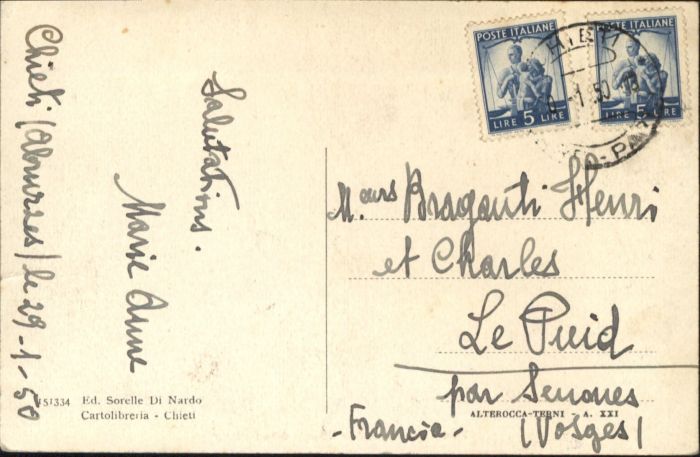 Chieti (Abruzzes) le 29-1-50
Salutations.
Marie Anne
151334 Ed. Sorelle Di Nardo
Cartolibreria - Chieti
POSTE ITALIANE
LIRE 5 LIRE
POSTE ITALIANE
LIRE 5 LIRE
CHIETI
-1.50
M.eurs Braganti Henri
et Charles
Le Puid
par Senones
ALTEROCCA-TERNI - A. XXI
-Francia- (Vosges)